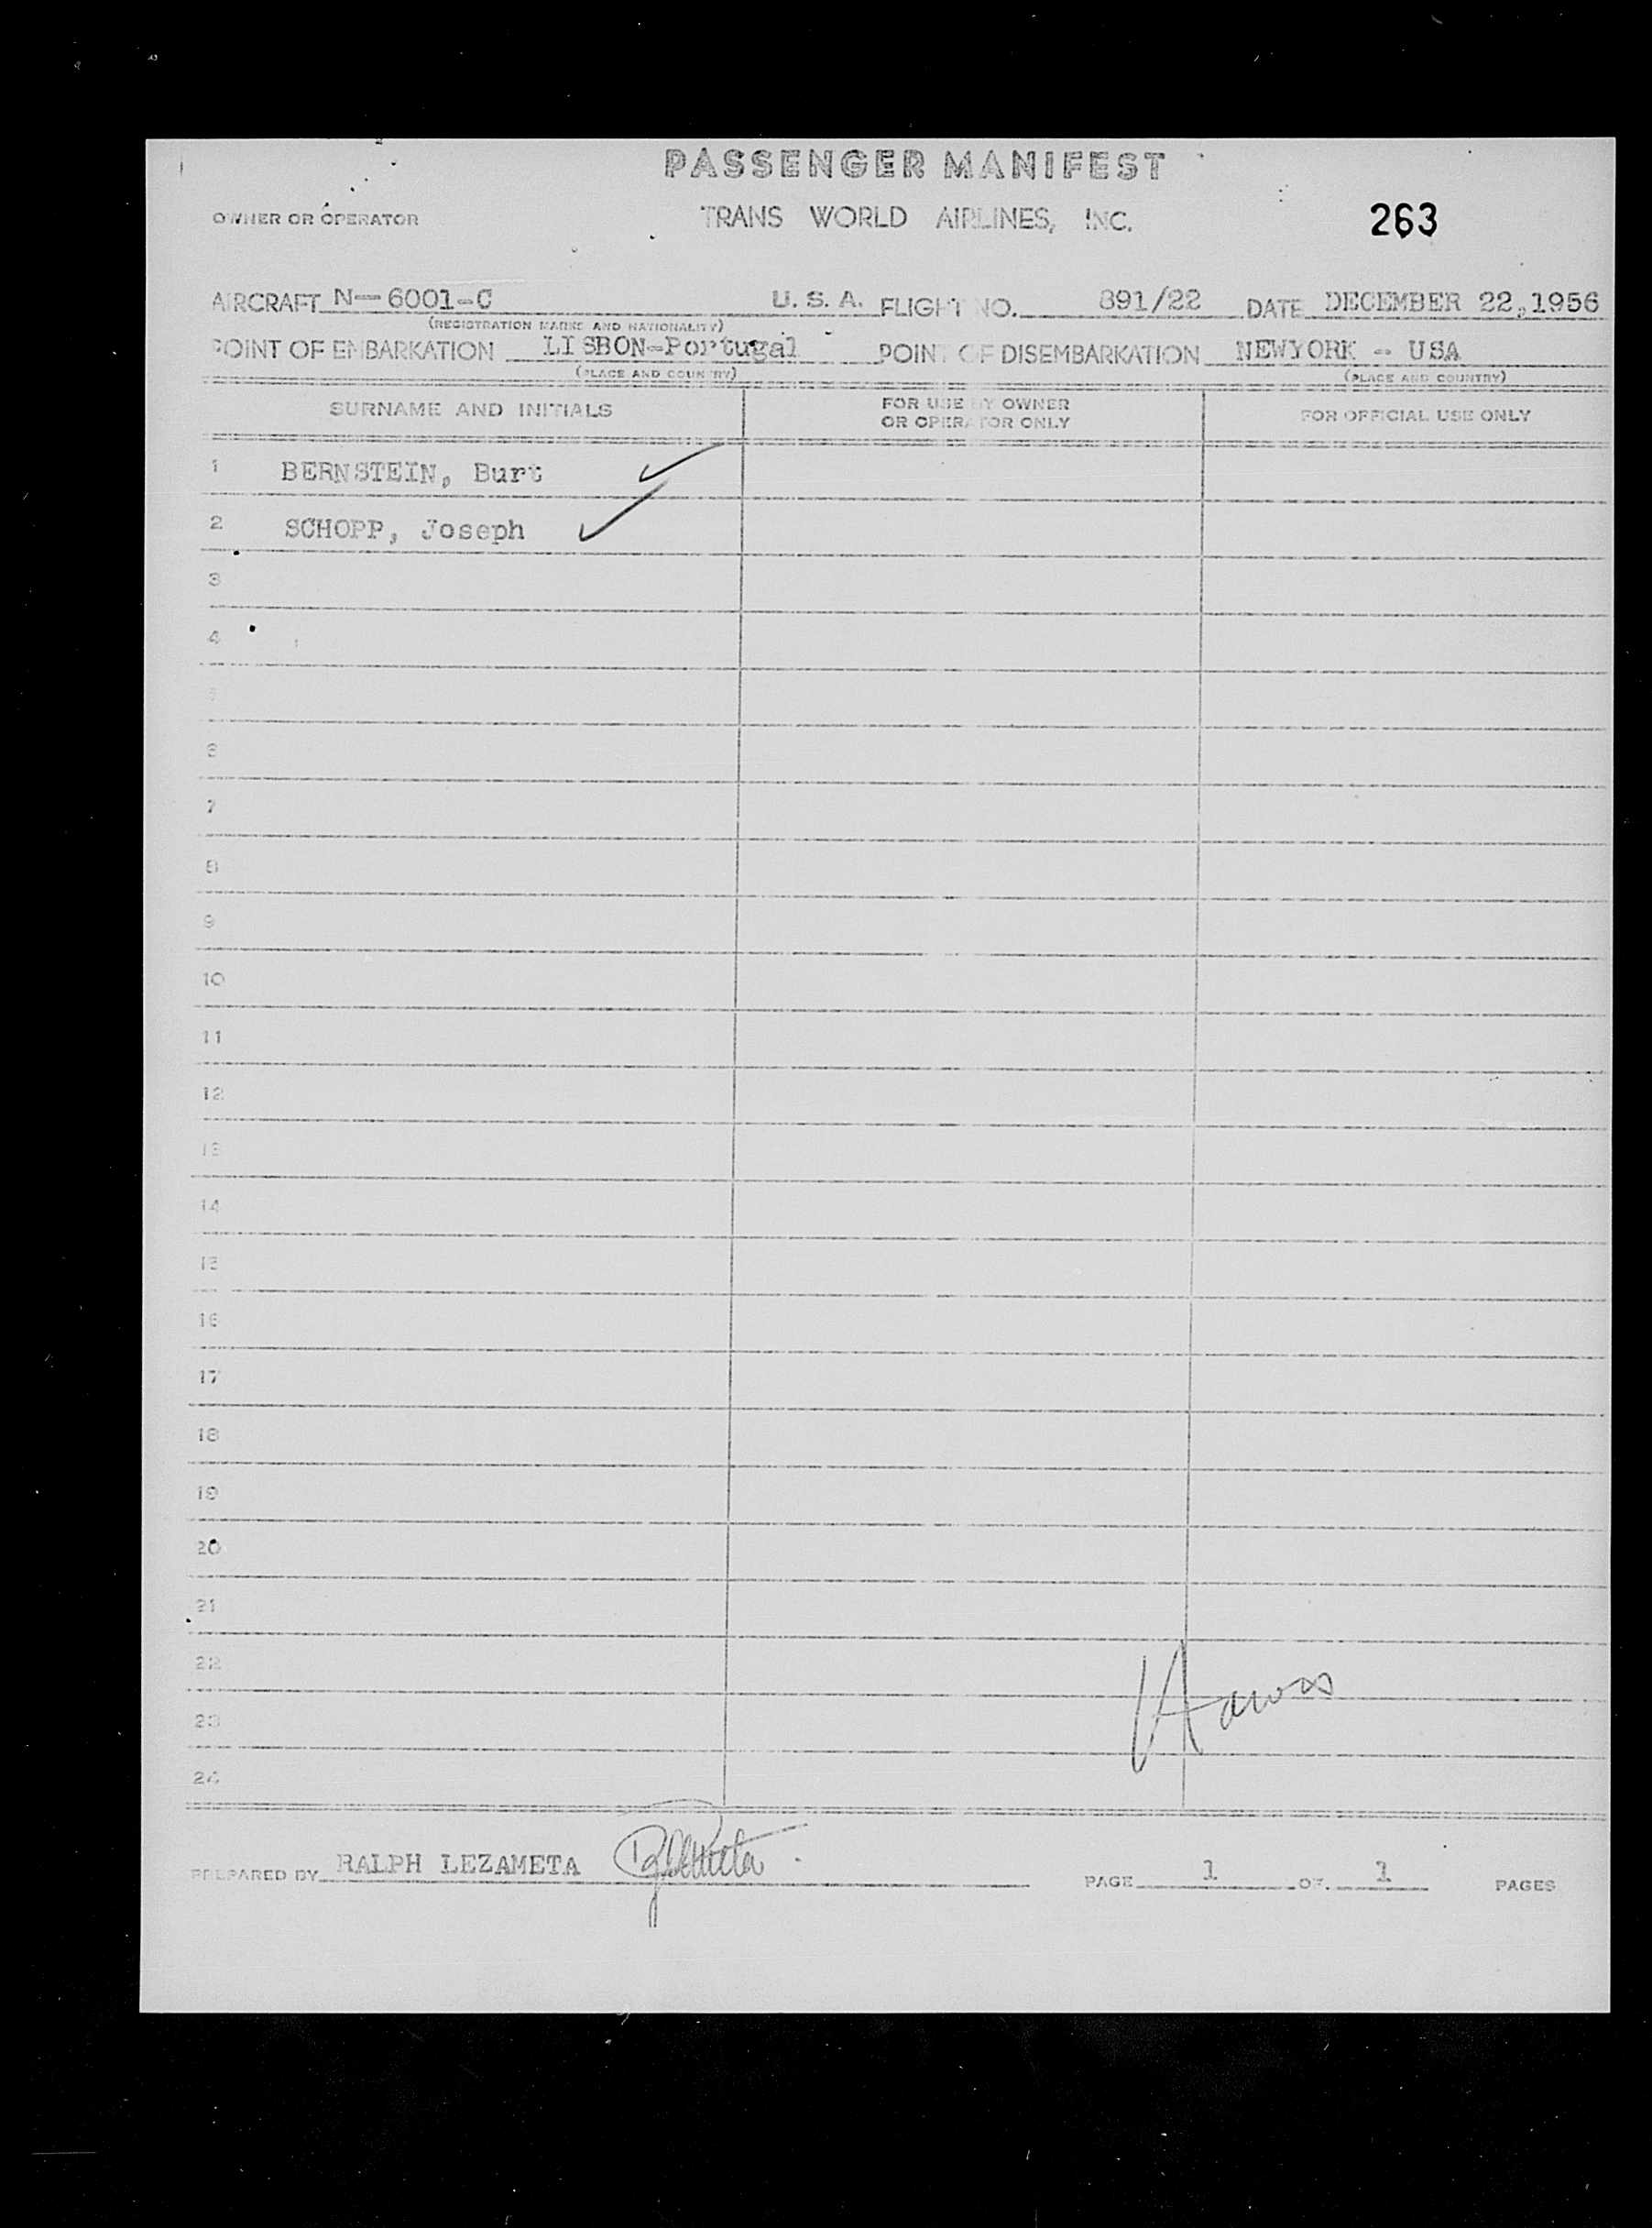 PASSENGER MANIFEST
OWNER OR OPERATOR TRANS WORLD AIRLINES, INC. 263
AIRCRAFT N-6001-C U. S. A. FLIGHT NO. 891/22 DATE DECEMBER 22,1956
(REGISTRATION MARKS AND NATIONALITY)
POINT OF EMBARKATION LISBON-Portugal POINT OF DISEMBARKATION NEWYORK - USA
(PLACE AND COUNTRY) (PLACE AND COUNTRY)
SURNAME AND INITIALS FOR USE BY OWNER OR OPERATOR ONLY FOR OFFICIAL USE ONLY
1 BERNSTEIN, Burt
2 SCHOPP, Joseph
3
4
5
6
7
8
9
10
11
12
13
14
15
16
17
18
19
20
21
22
23
24
PREPARED BY RALPH LEZAMETA PAGE 1 OF 1 PAGES